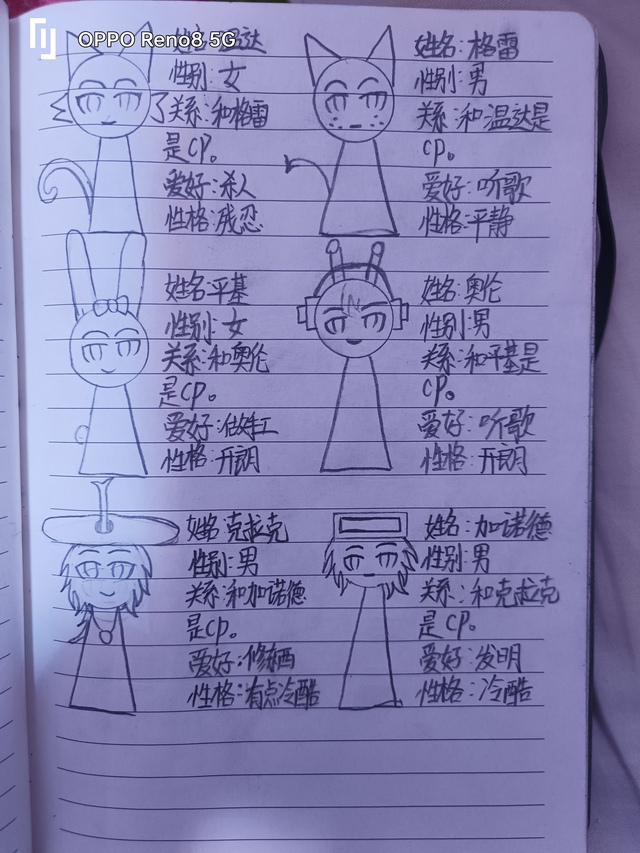 OPPO Reno8 5G
姓名:温达
性别:女
关系:和格雷
是CP。
爱好:杀人
性格:残忍
姓名:格雷
性别:男
关系:和温达是
CP。
爱好:听歌
性格:平静
姓名:平基
性别:女
关系:和奥伦
是CP。
爱好:做手工
性格:开朗
姓名:奥伦
性别:男
关系:和平基是
CP。
爱好:听歌
性格:开朗
姓名克拉克
性别:男
关系:和加诺德
是CP。
爱好:修东西
性格:有点冷酷
姓名:加诺德
性别:男
关系:和克拉克
是CP。
爱好:发明
性格:冷酷